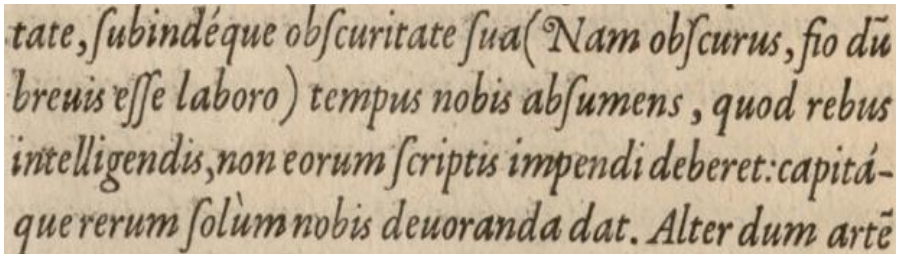 tate, ſubindéque obſcuritate ſua (Nam obſcurus, fio dū
breuis eſſe laboro) tempus nobis abſumens, quod rebus
intelligendis, non eorum ſcriptis impendi deberet: capitá-
que rerum ſolùm nobis deuoranda dat. Alter dum artē